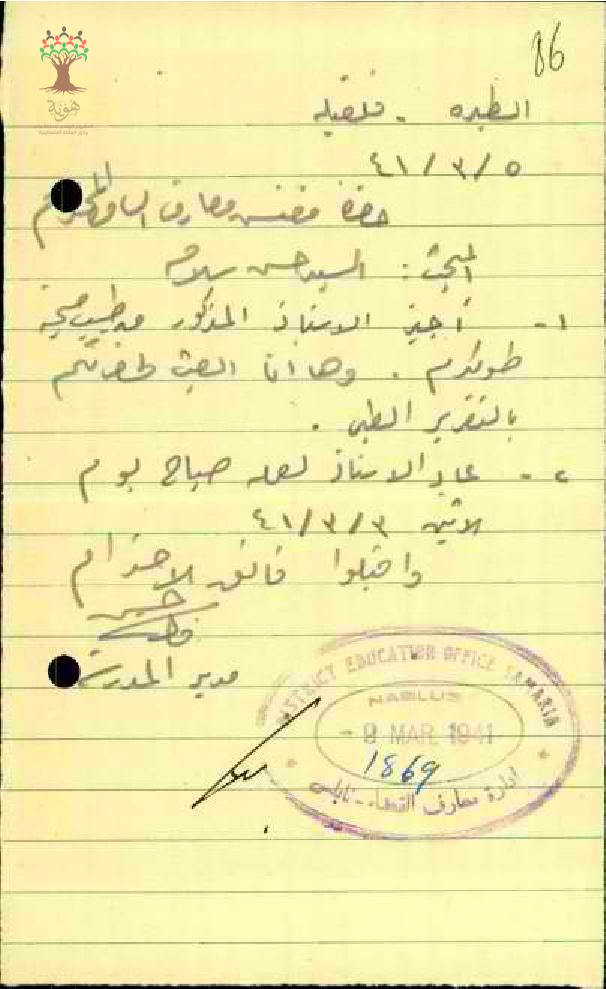 86
هوية
الطيره - قلقيليه
٤١/٣/٥
حضرة مفتش معارف السامره المحترم
المبحث : السيد حسن سلامه
١- أجيز الاستاذ المذكور من طبيب صحية
طولكرم . وها انا ابعث لحضرتكم
بالتقرير الطبي .
٢- عاد الاستاذ لعمله صباح يوم
الاثنين ٤١/٣/٣
واقبلوا فائق الاحترام
مدير المدرسة
DISTRICT EDUCATION OFFICE SAMARIA
NABLUS
- 9 MAR 1941
1869
ادارة معارف القضاء - نابلس